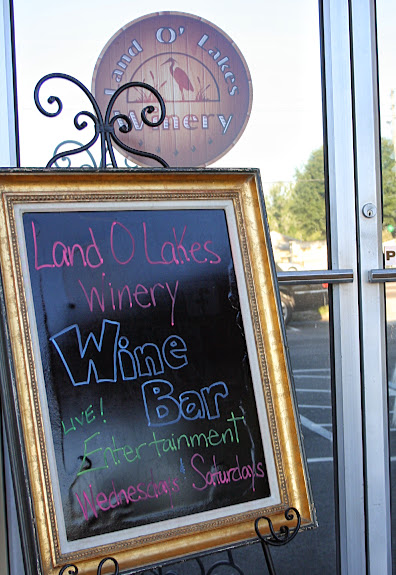 Land O' Lakes
Winery
Land O Lakes
Winery
Wine
Bar
LIVE!
Entertainment
Wednesdays Saturdays
P